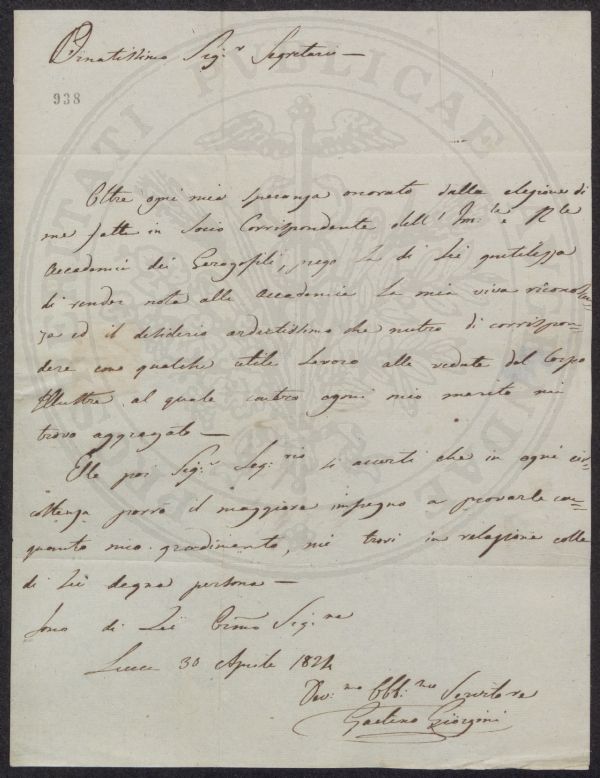 Ornatissimo Sig.r Segretario —
938
Oltre ogni mia speranza onorato dalla elezione di
me fatta in Socio Corrispondente dell'Im.le e R.le
Accademia dei Georgofili, prego la di Lei gentilezza
di render nota alla Accademia la mia viva riconoscen=
za ed il desiderio ardentissimo che nutro di corrispon=
dere con qualche utile lavoro alle vedute del Corpo
Illustre al quale contro ogni mio merito mi
trovo aggregato —
Ella poi Sig.r Seg.rio si accerti che in ogni cir=
costanza porrò il maggiore impegno a provarle con
quanto mio gradimento, mi trovi in relazione colla
di Lei degna persona —
Sono di Lei Ornmo Sig.na
Lucca 30 Aprile 1824
Dev.mo Obb.mo Servitore
Gaetano Giorgini
PUBLICAE